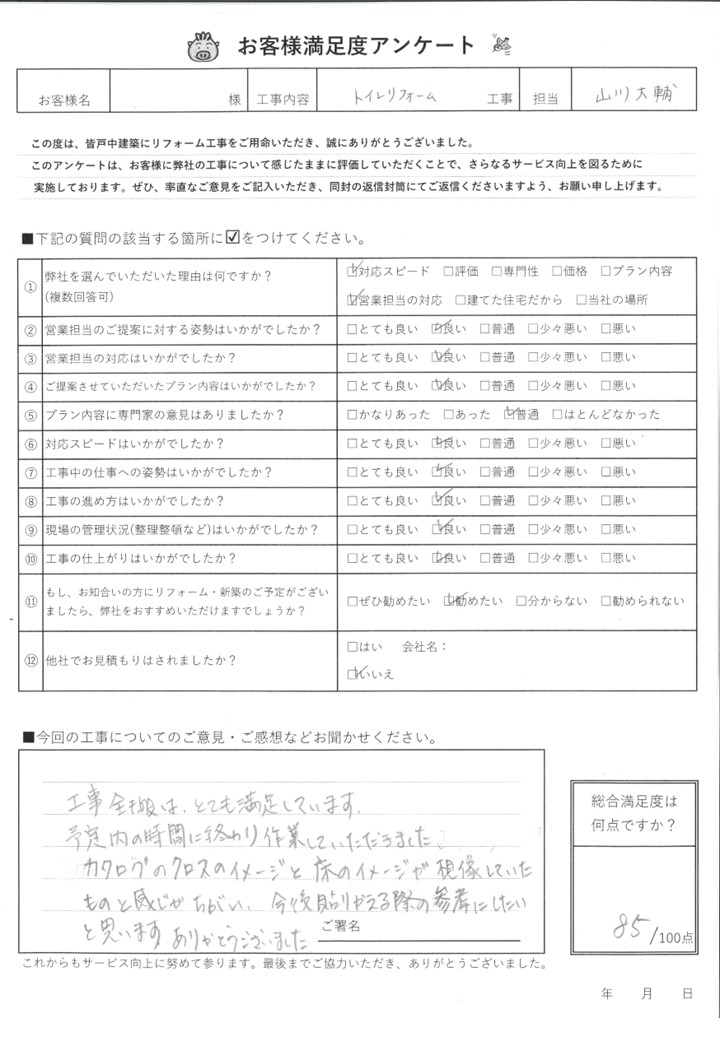 お客様満足度アンケート
お客様名 様 工事内容 トイレリフォーム 工事 担当 山川大輔
この度は、皆戸中建築にリフォーム工事をご用命いただき、誠にありがとうございました。
このアンケートは、お客様に弊社の工事について感じたままに評価していただくことで、さらなるサービス向上を図るために
実施しております。ぜひ、率直なご意見をご記入いただき、同封の返信封筒にてご返信くださいますよう、お願い申し上げます。
■下記の質問の該当する箇所に☑をつけてください。
① 弊社を選んでいただいた理由は何ですか？
(複数回答可)
☑対応スピード □評価 □専門性 □価格 □プラン内容
☑営業担当の対応 □建てた住宅だから □当社の場所
② 営業担当のご提案に対する姿勢はいかがでしたか？ □とても良い ☑良い □普通 □少々悪い □悪い
③ 営業担当の対応はいかがでしたか？ □とても良い ☑良い □普通 □少々悪い □悪い
④ ご提案させていただいたプラン内容はいかがでしたか？ □とても良い ☑良い □普通 □少々悪い □悪い
⑤ プラン内容に専門家の意見はありましたか？ □かなりあった □あった ☑普通 □ほとんどなかった
⑥ 対応スピードはいかがでしたか？ □とても良い ☑良い □普通 □少々悪い □悪い
⑦ 工事中の仕事への姿勢はいかがでしたか？ □とても良い ☑良い □普通 □少々悪い □悪い
⑧ 工事の進め方はいかがでしたか？ □とても良い ☑良い □普通 □少々悪い □悪い
⑨ 現場の管理状況(整理整頓など)はいかがでしたか？ □とても良い ☑良い □普通 □少々悪い □悪い
⑩ 工事の仕上がりはいかがでしたか？ □とても良い ☑良い □普通 □少々悪い □悪い
⑪ もし、お知合いの方にリフォーム・新築のご予定がござい
ましたら、弊社をおすすめいただけますでしょうか？
□ぜひ勧めたい ☑勧めたい □分からない □勧められない
⑫ 他社でお見積もりはされましたか？
□はい 会社名：
☑いいえ
■今回の工事についてのご意見・ご感想などお聞かせください。
工事全般は、とても満足しています。
予定内の時間に終わり作業していただきました。
カタログのクロスのイメージと床のイメージが想像していた
ものと感じがちがい、今後貼りかえる際の参考にしたい
と思います ありがとうございました
ご署名
総合満足度は
何点ですか？
85/100点
これからもサービス向上に努めて参ります。最後までご協力いただき、ありがとうございました。
年 月 日